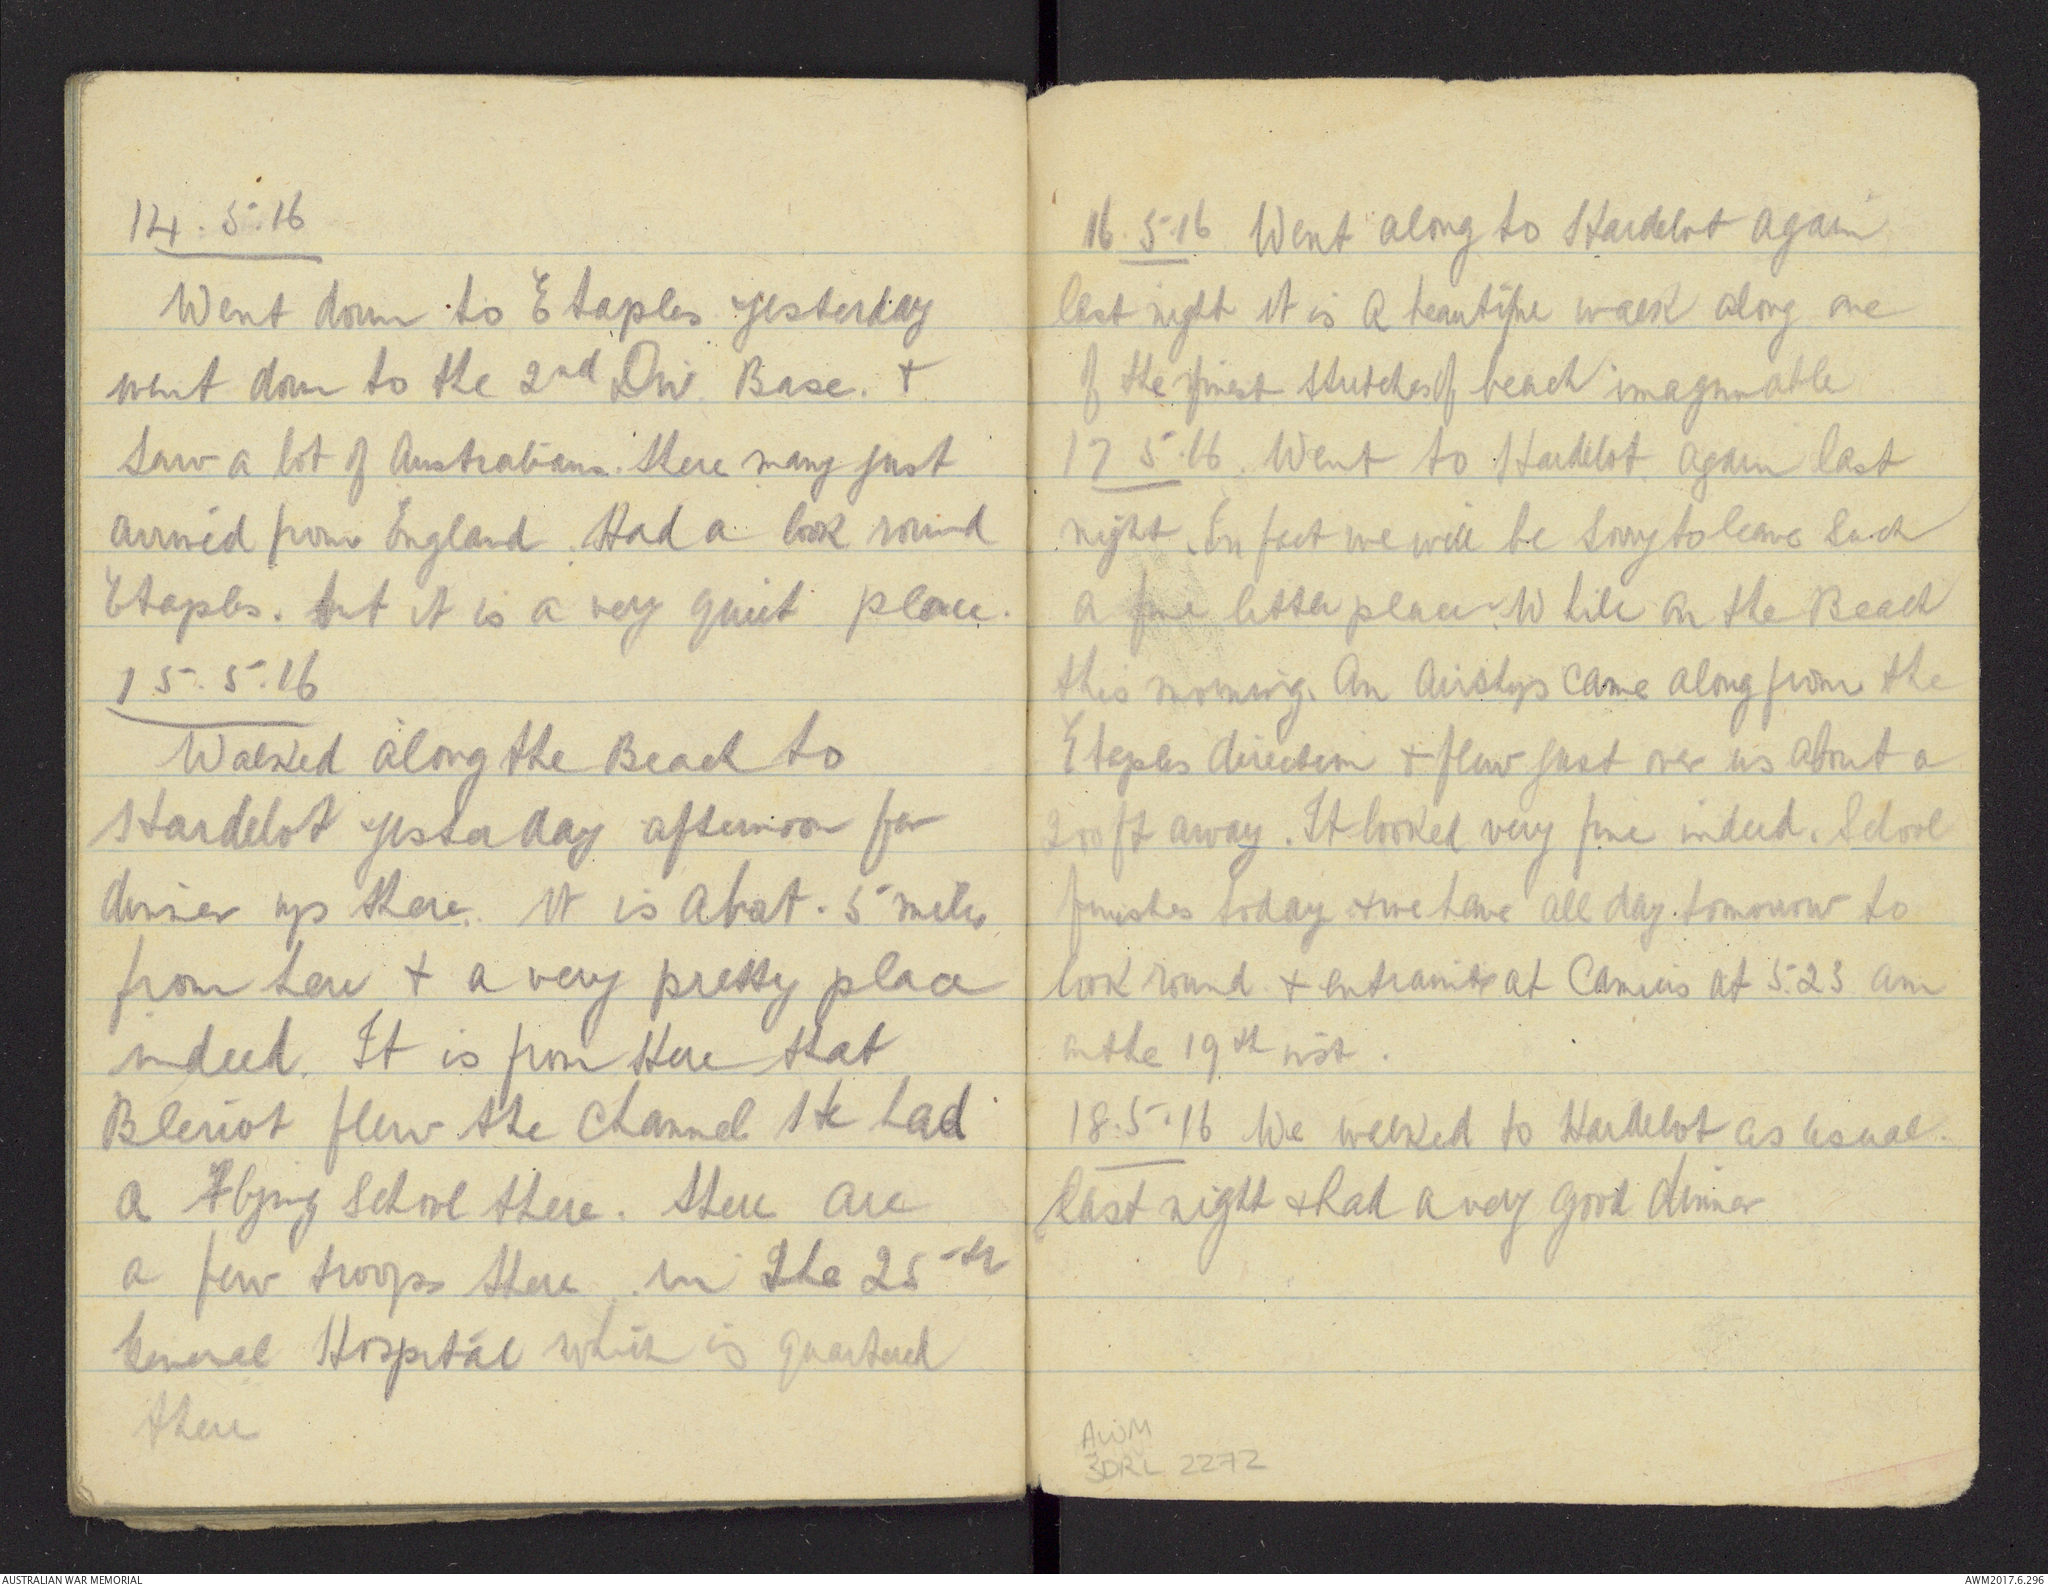 14.5.16
Went down to Etaples yesterday
went down to the 2nd Div. Base. +
saw a lot of Australians. there many just
arrived from England. Had a look round
Etaples. but it is a very quiet place.
15.5.16
Walked along the Beach to
Hardelot yesterday afternoon for
dinner up there. It is about. 5 miles
from here + a very pretty place
indeed. It is from Here that
Bleriot flew the Channel He had
a Flying School there. there are
a few troops there in the 25th
General Hospital which is quartered
there
16.5.16 Went along to Hardelot again
last night it is a beautiful walk along one
of the finest stretches of beach imaginable
17.5.16. Went to Hardelot again last
night. In fact we will be sorry to leave such
a fine little place. While on the Beach
this morning. An Airship came along from the
Etaples direction + flew just over us about a
200 ft away. It looked very fine indeed. School
finishes today + we have all day tomorrow to
look round + entrain at Camiers at 5.23 am
on the 19th inst.
18.5.16 We walked to Hardelot as usual.
last night + had a very good dinner
AWM
3DRL 2272
AUSTRALIAN WAR MEMORIAL
AWM2017.6.296